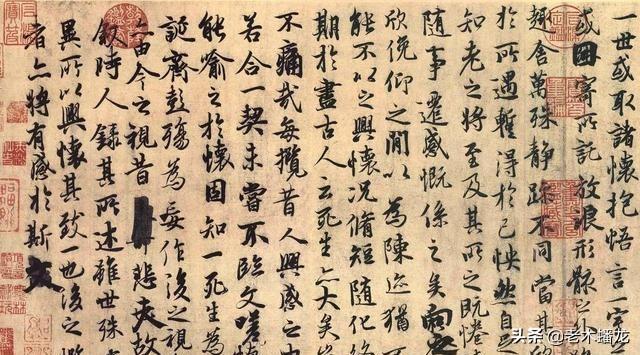 一世或取諸懷抱悟言一室
或因寄所託放浪形骸之外
趣舍萬殊靜躁不同當其
於所遇暫得於己怏然自
知老之將至及其所之既惓
隨事遷感慨係之矣向
欣俛仰之閒以為陳迹猶
能不以之興懷況脩短隨化終
期於盡古人云死生亦大矣
不痛哉每攬昔人興感之由
若合一契未嘗不臨文嗟
能喻之於懷固知一死生為
誕齊彭殤為妄作後之視
亦由今之視昔悲夫故
叙時人錄其所述雖世殊
異所以興懷其致一也後之攬
者亦將有感於斯文
头条 @老木蟠龙